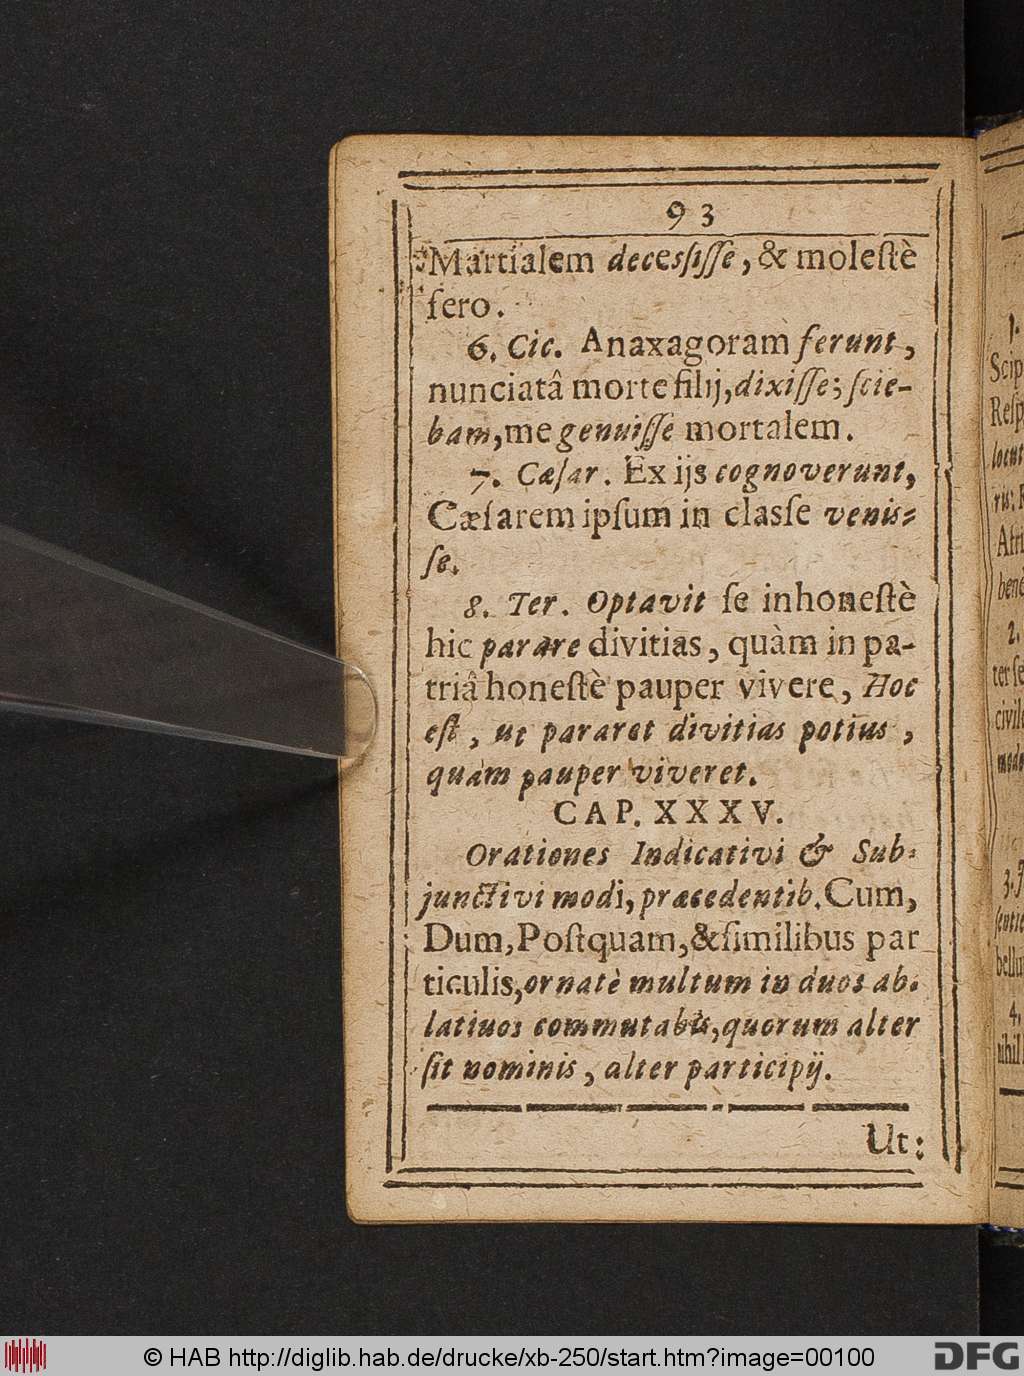 93
Martialem deceſſiſſe, & moleſtè
fero.
6. Cic. Anaxagoram ferunt,
nunciatâ morte filij, dixiſſe; ſcie-
bam, me genuiſſe mortalem.
7. Cæſar. Ex ijs cognoverunt,
Cæſarem ipſum in claſſe venis-
ſe.
8. Ter. Optavit ſe inhoneſtè
hic parare divitias, quàm in pa-
triâ honeſtè pauper vivere, Hoc
eſt, ut pararet divitias potius,
quàm pauper viveret.
CAP. XXXV.
Orationes Indicativi & Sub-
junctivi modi, præcedentib. Cum,
Dum, Poſtquam, & ſimilibus par
ticulis, ornatè multum in duos ab-
lativos commutabis, quorum alter
ſit nominis, alter participij.
Ut:
1.
Scip
Reſp
locut
ris: F
Atri
bene
2.
ter ſe
civil
modo
3.
ſentie
bellu
4.
nihil
© HAB http://diglib.hab.de/drucke/xb-250/start.htm?image=00100
DFG